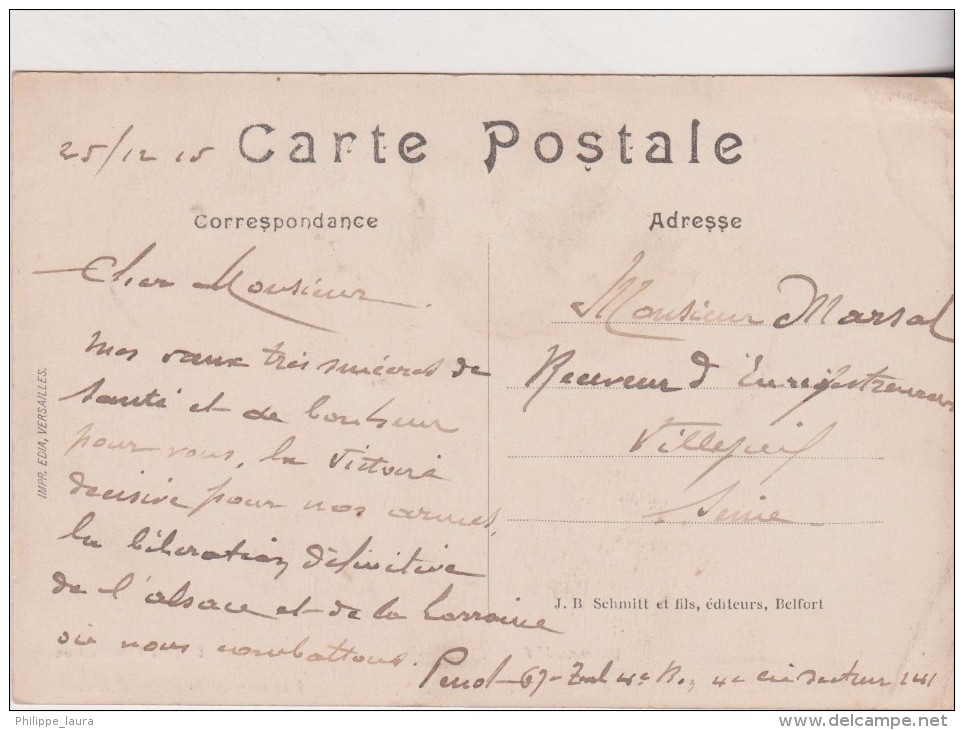 25/12 15
Carte Postale
Correspondance
Adresse
Cher Monsieur.
Mes vœux très sincères de
santé et de bonheur
pour vous, la Victoire
décisive pour nos armes,
la libération définitive
de l'alsace et de la Lorraine
où nous combattons.
4e Bon 4e Cie secteur 141
Monsieur Marsal
Receveur d'Enregistrement
Villejuif
Seine
J. B. Schmitt et fils, éditeurs, Belfort
IMPR. EDIA, VERSAILLES.
Philippe_laura
www.delcampe.net